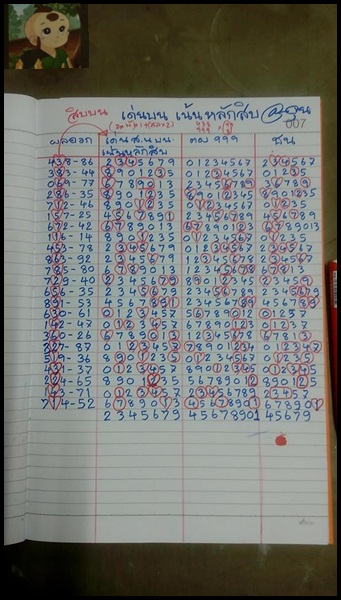 สิบบน เด่นบน เน้นหลักสิบ
007
ผลออก เด่น ส.น.บน ตบ 999 ชน
เน้นหลักสิบ
438-86 2345679 01234567 234567
383-44 8901235 01234567 01235
069-77 6789013 23456789 36789
286-35 8901235 89012345 8901235
112-46 8901235
157-25 4567891 23456789 456789
672-42 6789013 67890123 6789013
116-14 8901235 01234567 01235
453-78 2345679 01234567 234567
863-92 2345679 12345678 234567
785-80 6789013 12345678 67813
729-40 2345679 89012345
656-35 2345679 23456789 2345679
891-53 4567891 23456789 456789
630-61 0123457 56789012 01257
142-47 0123457 67890123 01237
360-26 6789013
327-87 0123457 78901234 012347
519-36 8901235 01234567 01235
431-37 0123457 89012345 012345
224-65 8901235 56789012 890125
143-71 0123457 23456789 23457
714-52 6789013 45678901 678901
2345679 45678901 45679